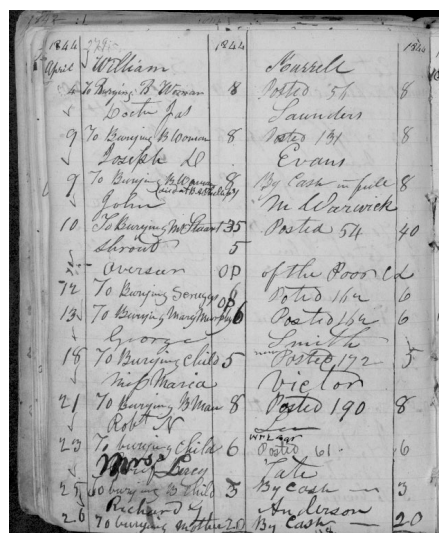 1844 1844 184
April William Harrell
4 To Burying B Woman 8 Posted 54 8
Doctr Jas Saunders
9 To Burying B Woman 8 Posted 131 8
Joseph D Evans
9 To Burying B Woman 8 By Cash in full 8
John M Warwick
10 To Burying Mr Stuart 35 Posted 54 40
Shroud 5
Overseer OP of the Poor
12 To Burying Scruggs 6 Posted 162 6
13 To Burying Mary Murphy 6 Posted 162 6
George Smith
18 To Burying Child 5 Posted 172 5
Miss Marca Victor
21 To Burying B Man 8 Posted 190 8
Robt N Lee
23 To burying Child 6 Posted 61 6
Mrs Lucy Tate
25 To burying B Child 3 By Cash — 3
Richard Anderson
26 To burying Mother 20 By Cash — 20